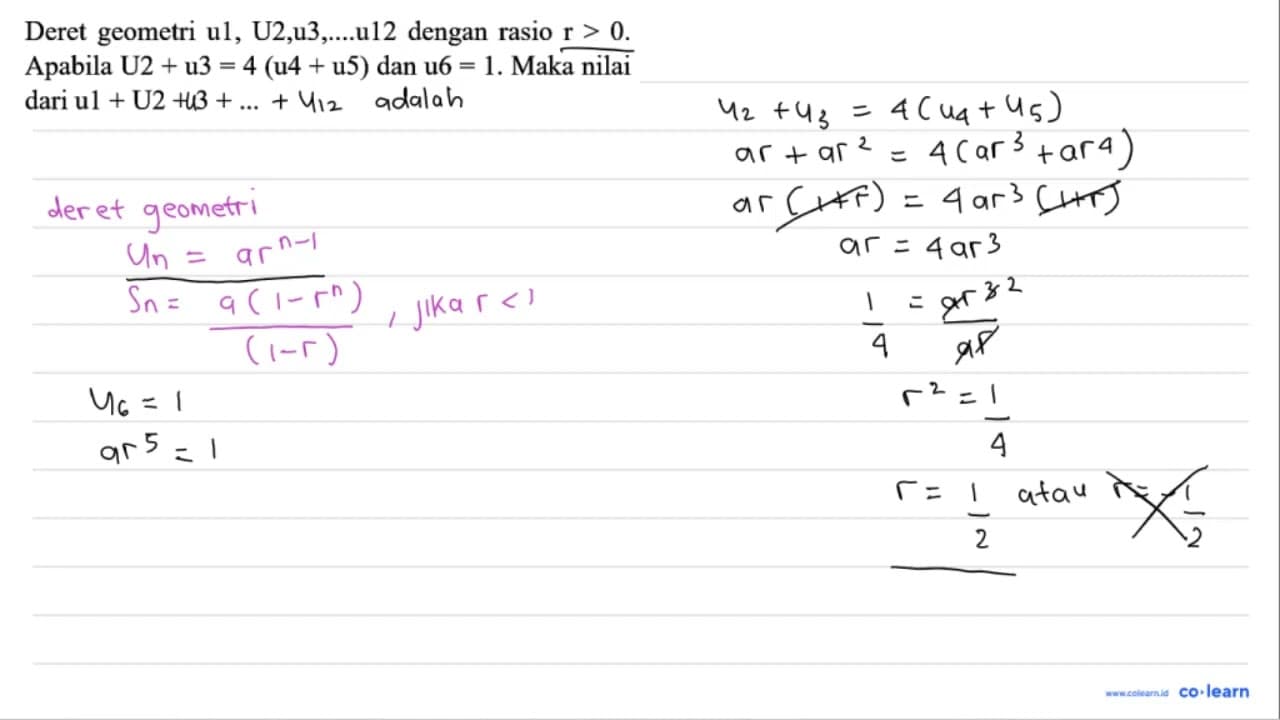 Deret geometri u1, U2,u3,....u12 dengan rasio r > 0.
Apabila U2 + u3 = 4 (u4 + u5) dan u6 = 1. Maka nilai
dari u1 + U2 +u3 + ... + u12 adalah
deret geometri
Un = ar^n-1
Sn = a(1-r^n) / (1-r) , jika r < 1
U6 = 1
ar^5 = 1
u2 + u3 = 4(u4 + u5)
ar + ar^2 = 4(ar^3 + ar^4)
ar (1+r) = 4ar^3 (1+r)
ar = 4ar^3
1/4 = ar^3 2 / ar
r^2 = 1/4
r = 1/2 atau r = -1/2
www.colearn.id co·learn